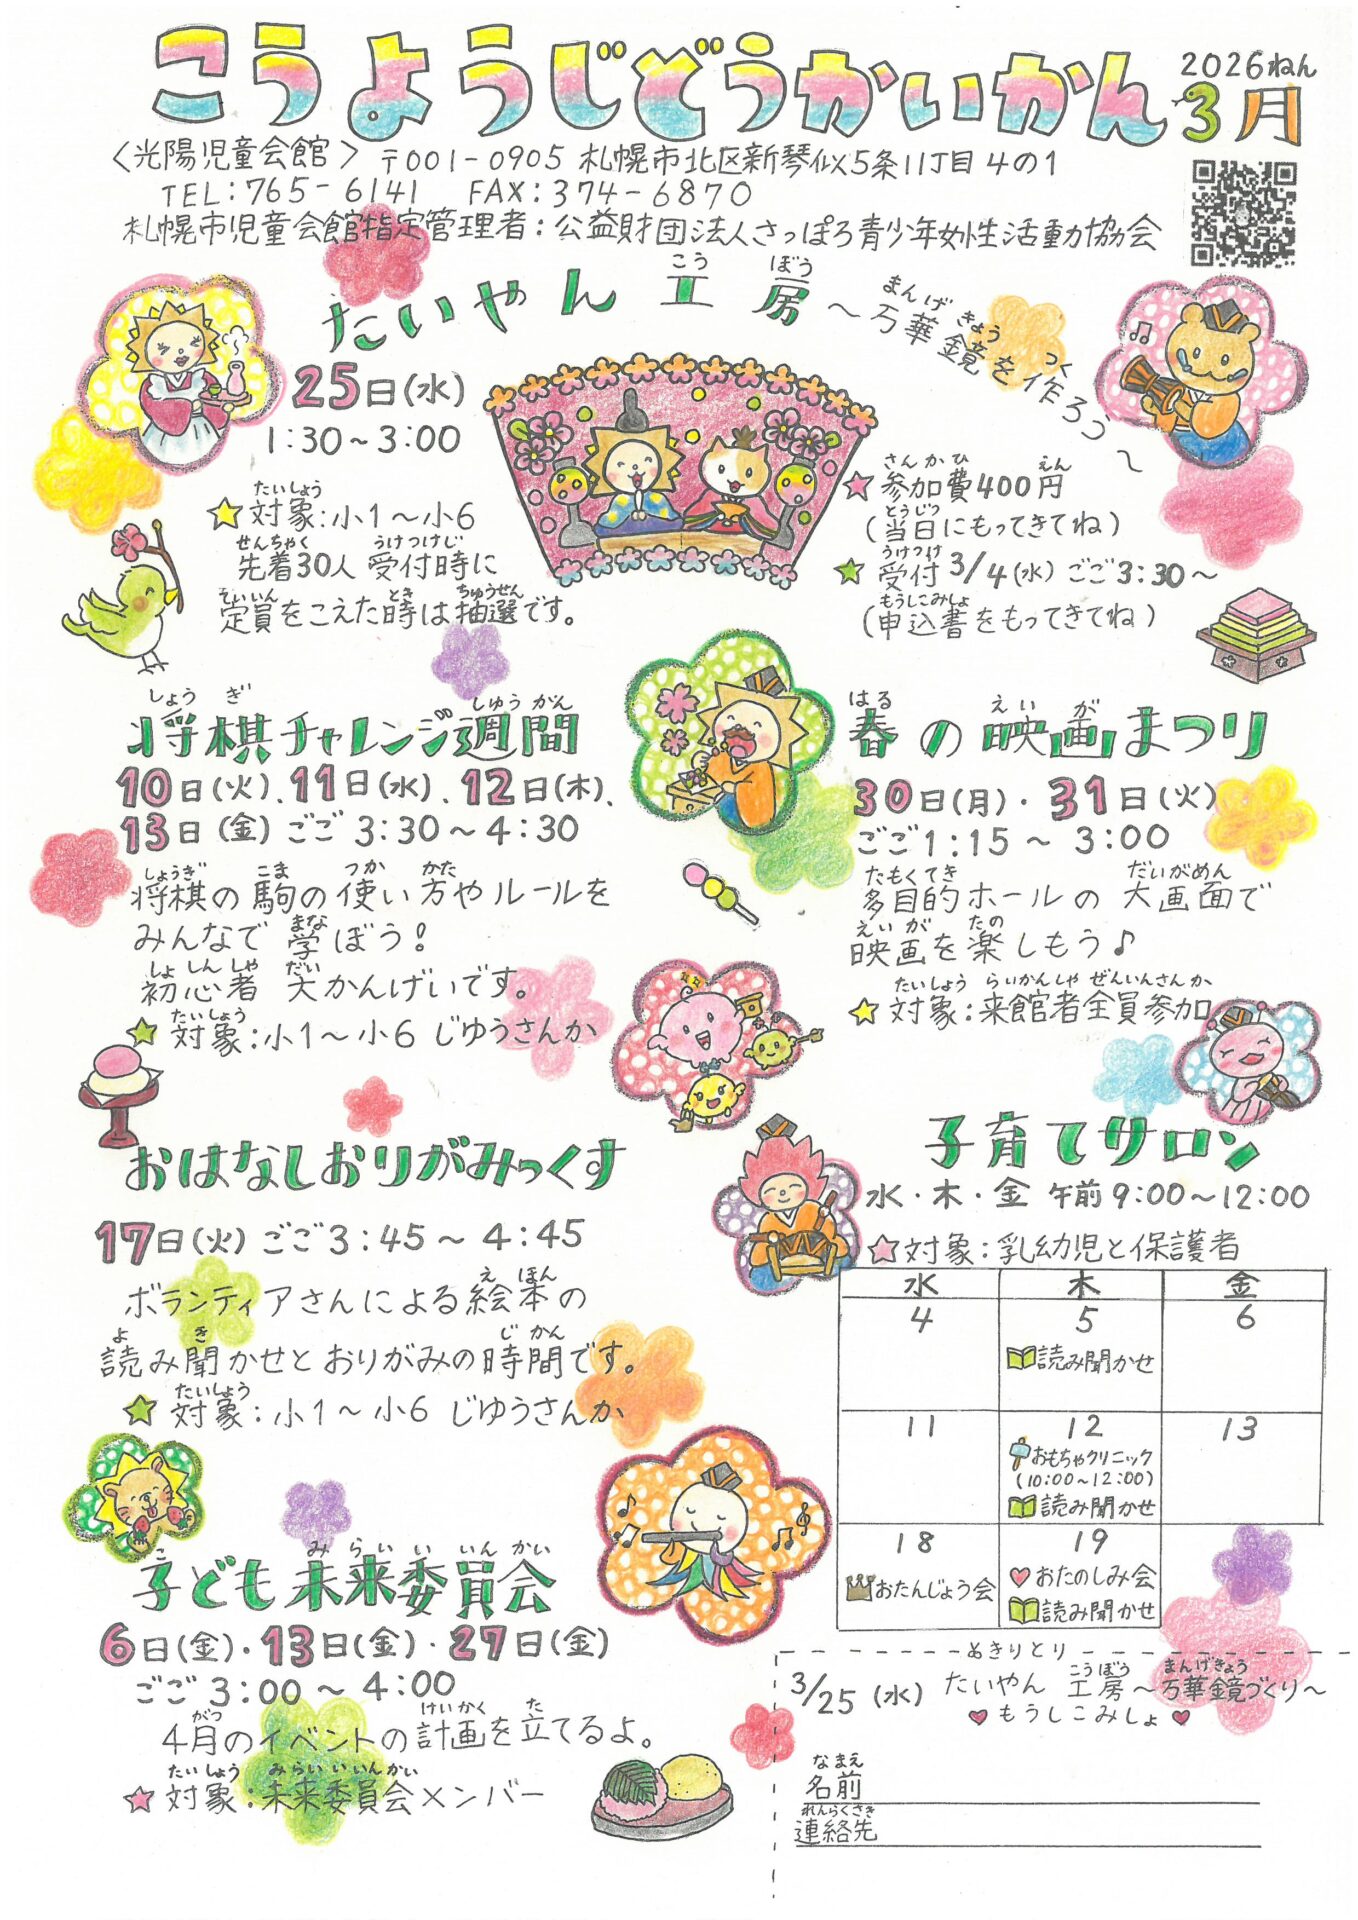 こうようじどうかいかん
2026ねん
3月
〈光陽児童会館〉 〒001-0905 札幌市北区新琴似5条11丁目4の1
TEL:765-6141 FAX:374-6870
札幌市児童会館指定管理者:公益財団法人さっぽろ青少年女性活動協会
こう ぼう
たいやん工房
まんげきょう つく
～万華鏡を作ろう～
25日(水)
1:30～3:00
たいしょう
☆対象:小1～小6
せんちゃく うけつけじ
先着30人 受付時に
ていいん とき ちゅうせん
定員をこえた時は抽選です。
さんかひ えん
☆参加費400円
とうじつ
(当日にもってきてね)
うけつけ
☆受付3/4(水)ごご3:30～
もうしこみしょ
(申込書をもってきてね)
しょう ぎ しゅう かん
将棋チャレンジ週間
10日(火)、11日(水)、12日(木)、
13日(金)ごご3:30～4:30
しょうぎ こま つか かた
将棋の駒の使い方やルールを
まな
みんなで学ぼう!
しょしんしゃ だい
初心者大かんげいです。
たいしょう
☆対象:小1～小6 じゆうさんか
はる えい が
春の映画まつり
30日(月)・31日(火)
ごご1:15～3:00
たもくてき だいがめん
多目的ホールの大画面で
えいが たの
映画を楽しもう♪
たいしょう らいかんしゃ ぜんいんさんか
☆対象:来館者全員参加
おはなしおりがみっくす
17日(火)ごご3:45～4:45
え ほん
ボランティアさんによる絵本の
よ き じかん
読み聞かせとおりがみの時間です。
たいしょう
☆対象:小1～小6 じゆうさんか
子育てサロン
水・木・金 午前9:00～12:00
☆対象:乳幼児と保護者
水 木 金
4 5 6
読み聞かせ
11 12 13
おもちゃクリニック
(10:00～12:00)
読み聞かせ
18 19
おたんじょう会 ♡おたのしみ会
読み聞かせ
こ みらいいいんかい
子ども未来委員会
6日(金)・13日(金)・27日(金)
ごご3:00～4:00
がつ けいかく た
4月のイベントの計画を立てるよ。
たいしょう みらいいいんかい
☆対象:未来委員会メンバー
きりとり
こうぼう まんげきょう
3/25(水) たいやん工房～万華鏡づくり～
♥もうしこみしょ♥
なまえ
名前
れんらくさき
連絡先